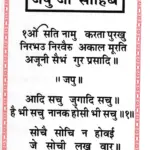 जपु जी साहिब
१ओं सति नामु करता पुरखु
निरभउ निरवैर अकाल मूरति
अजूनी सैभं गुर प्रसादि ॥
॥ जपु ॥
आदि सचु जुगादि सचु ॥
है भी सचु नानक होसी भी सचु ॥१॥
सोचै सोचि न होवई
जे सोची लख वार ॥